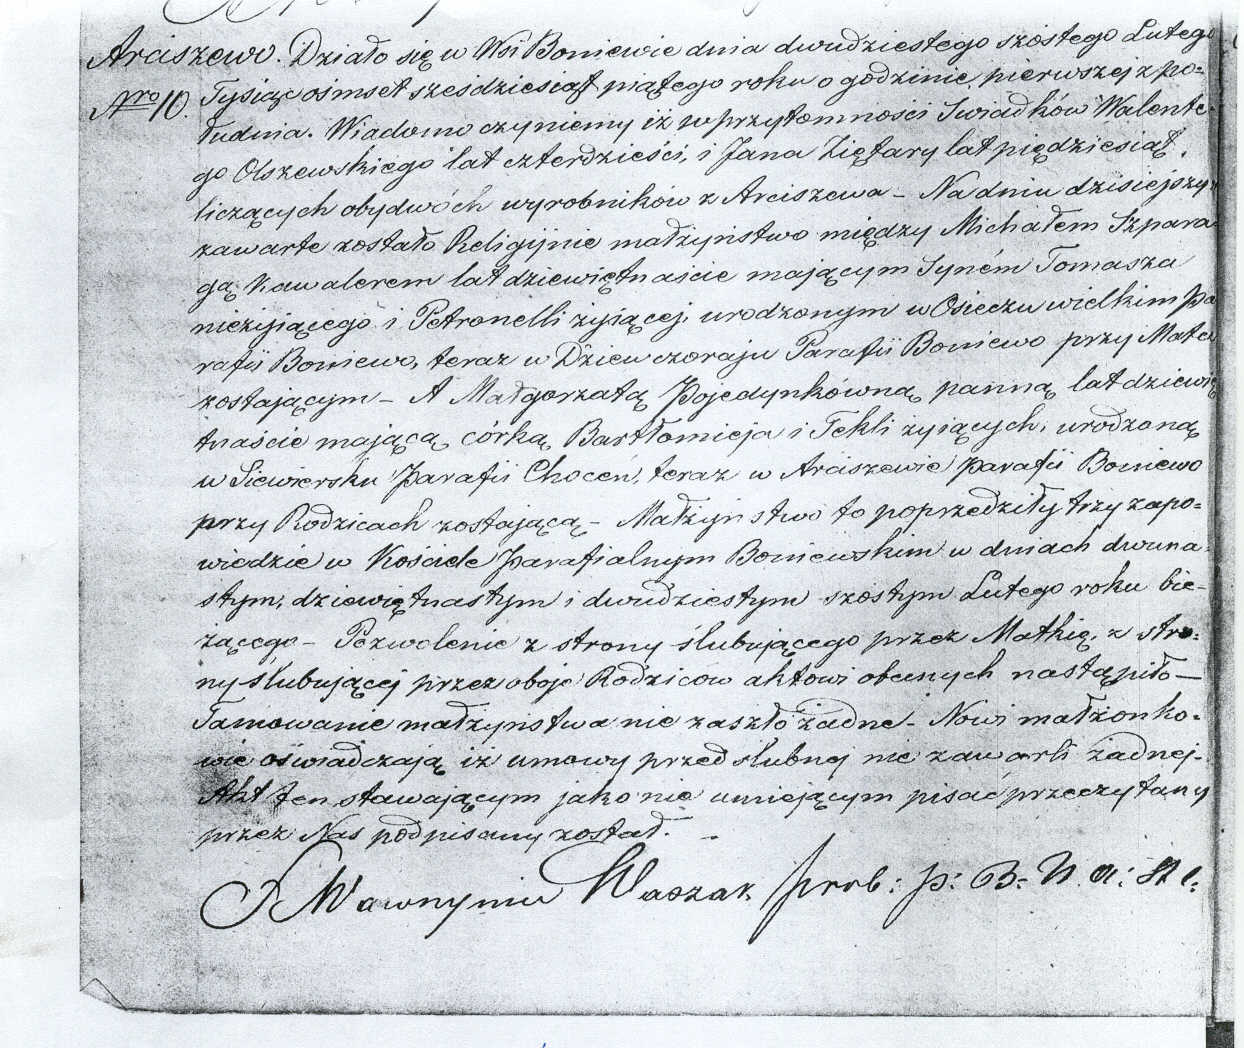 Arciszewo. Działo się w Wsi Boniewie dnia dwudziestego szóstego Lutego
Nro 10. Tysiąc ośmset sześdziesiąt piątego roku o godzinie pierwszej z po-
łudnia. Wiadomo czyniemy iż w przytomności Swiadków Walente-
go Olszewskiego lat czterdzieści, i Jana Ziętary lat piędziesiąt,
liczących obydwóch wyrobników z Arciszewa – Na dniu dzisiejszym
zawarte zostało Religijnie małżyństwo między Michałem Szpara-
gą Kawalerem lat dziewiętnaście mającym Synem Tomasza
nieżyjącego i Petronelli żyiącej, urodzonym w Osieczu wielkim Pa
rafii Boniewo, teraz w Dziewczoraju Parafii Boniewo przy Matce
zostającym – A Małgorzatą Pojedynkówną panną lat dziewię
tnaście mającą, córką Bartłomieja i Tekli żyiących, urodzoną
w Siewiersku Parafii Choceń, teraz w Arciszewie parafii Boniewo
przy Rodzicach zostającą – Małżyństwo to poprzedziły trzy zapo-
wiedzie w Kościele Parafialnym Boniewskim w dniach dwuna-
stym, dziewiętnastym i dwudziestym szóstym Lutego roku bie-
żącego – Pozwolenie z strony ślubującego przez Matkię, z stro-
ny ślubującej przez oboje Rodziców aktowi obecnych nastąpiło –
Tamowanie małżyństwa nie zaszło żadne – Nowi małżonko-
wie oświadczają iż umowy przedślubnej nie zawarli żadnej –
Akt ten stawającym jako nie umiejącym pisać przeczytany
przez Nas podpisany został. –
X Wawrzyniec Waszak prob: p: B.